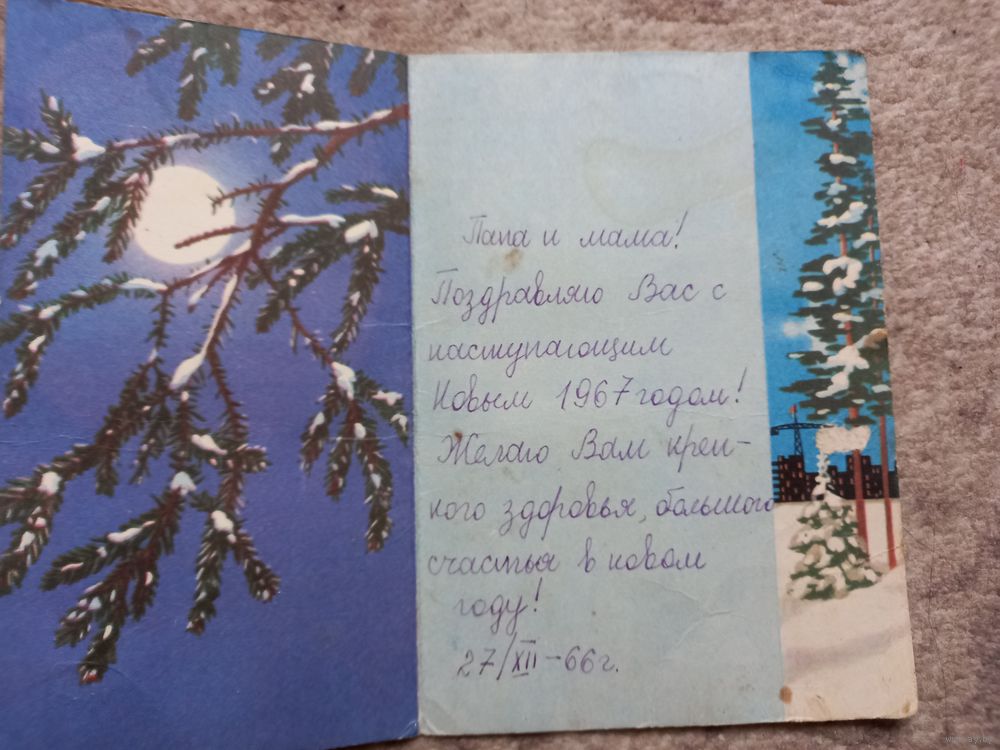 Папа и мама!
Поздравляю Вас с
наступающим
Новым 1967 годом!
Желаю Вам креп-
кого здоровья, большого
счастья в новом
году!
27/XII-66г.